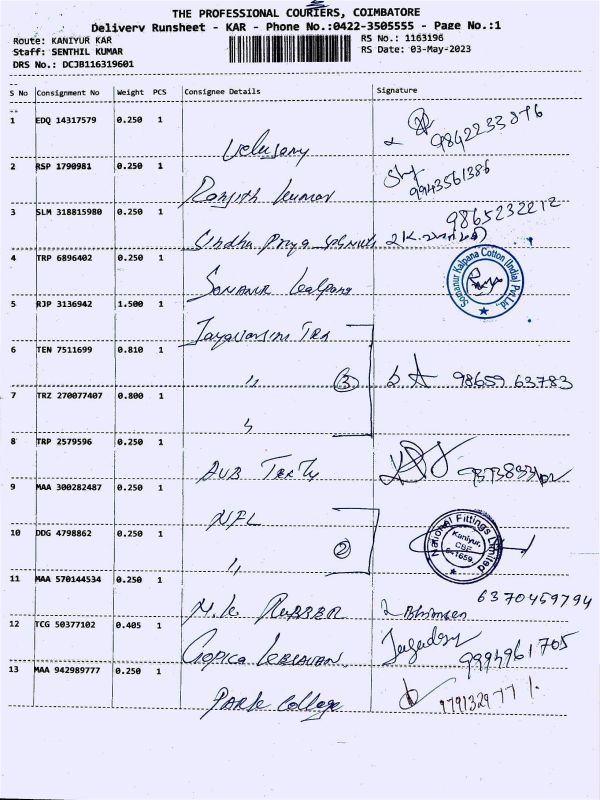 THE PROFESSIONAL COURIERS, COIMBATORE
Delivery Runsheet - KAR - Phone No.:0422-3505555 - Page No.:1
Route: KANIYUR KAR
RS No.: 1163196
Staff: SENTHIL KUMAR
RS Date: 03-May-2023
DRS No.: DCJB116319601
S No Consignment No Weight PCS Consignee Details Signature
1 EDQ 14317579 0.250 1
Velusamy 9842233876
2 RSP 1790981 0.250 1
Ranjith kumar 9943561386
3 SLM 318815980 0.250 1
9865232212
Sindhu Priya
4 TRP 6896402 0.250 1
Somanur Kalpana
Somanur Kalpana Cotton (India) Pvt Ltd.,
5 RJP 3136942 1.500 1
6 TEN 7511699 0.810 1
" 3 98659 63783
7 TRZ 270077407 0.800 1
"
8 TRP 2579596 0.250 1
9 MAA 300282487 0.250 1
NFL
10 DDG 4798862 0.250 1
" 2
National Fittings Limited
Kaniyur,
CBE
641659.
11 MAA 570144534 0.250 1
M.K RUBBER 6370459794
12 TCG 50377102 0.405 1
Gopica 9994961705
13 MAA 942989777 0.250 1
PARK College